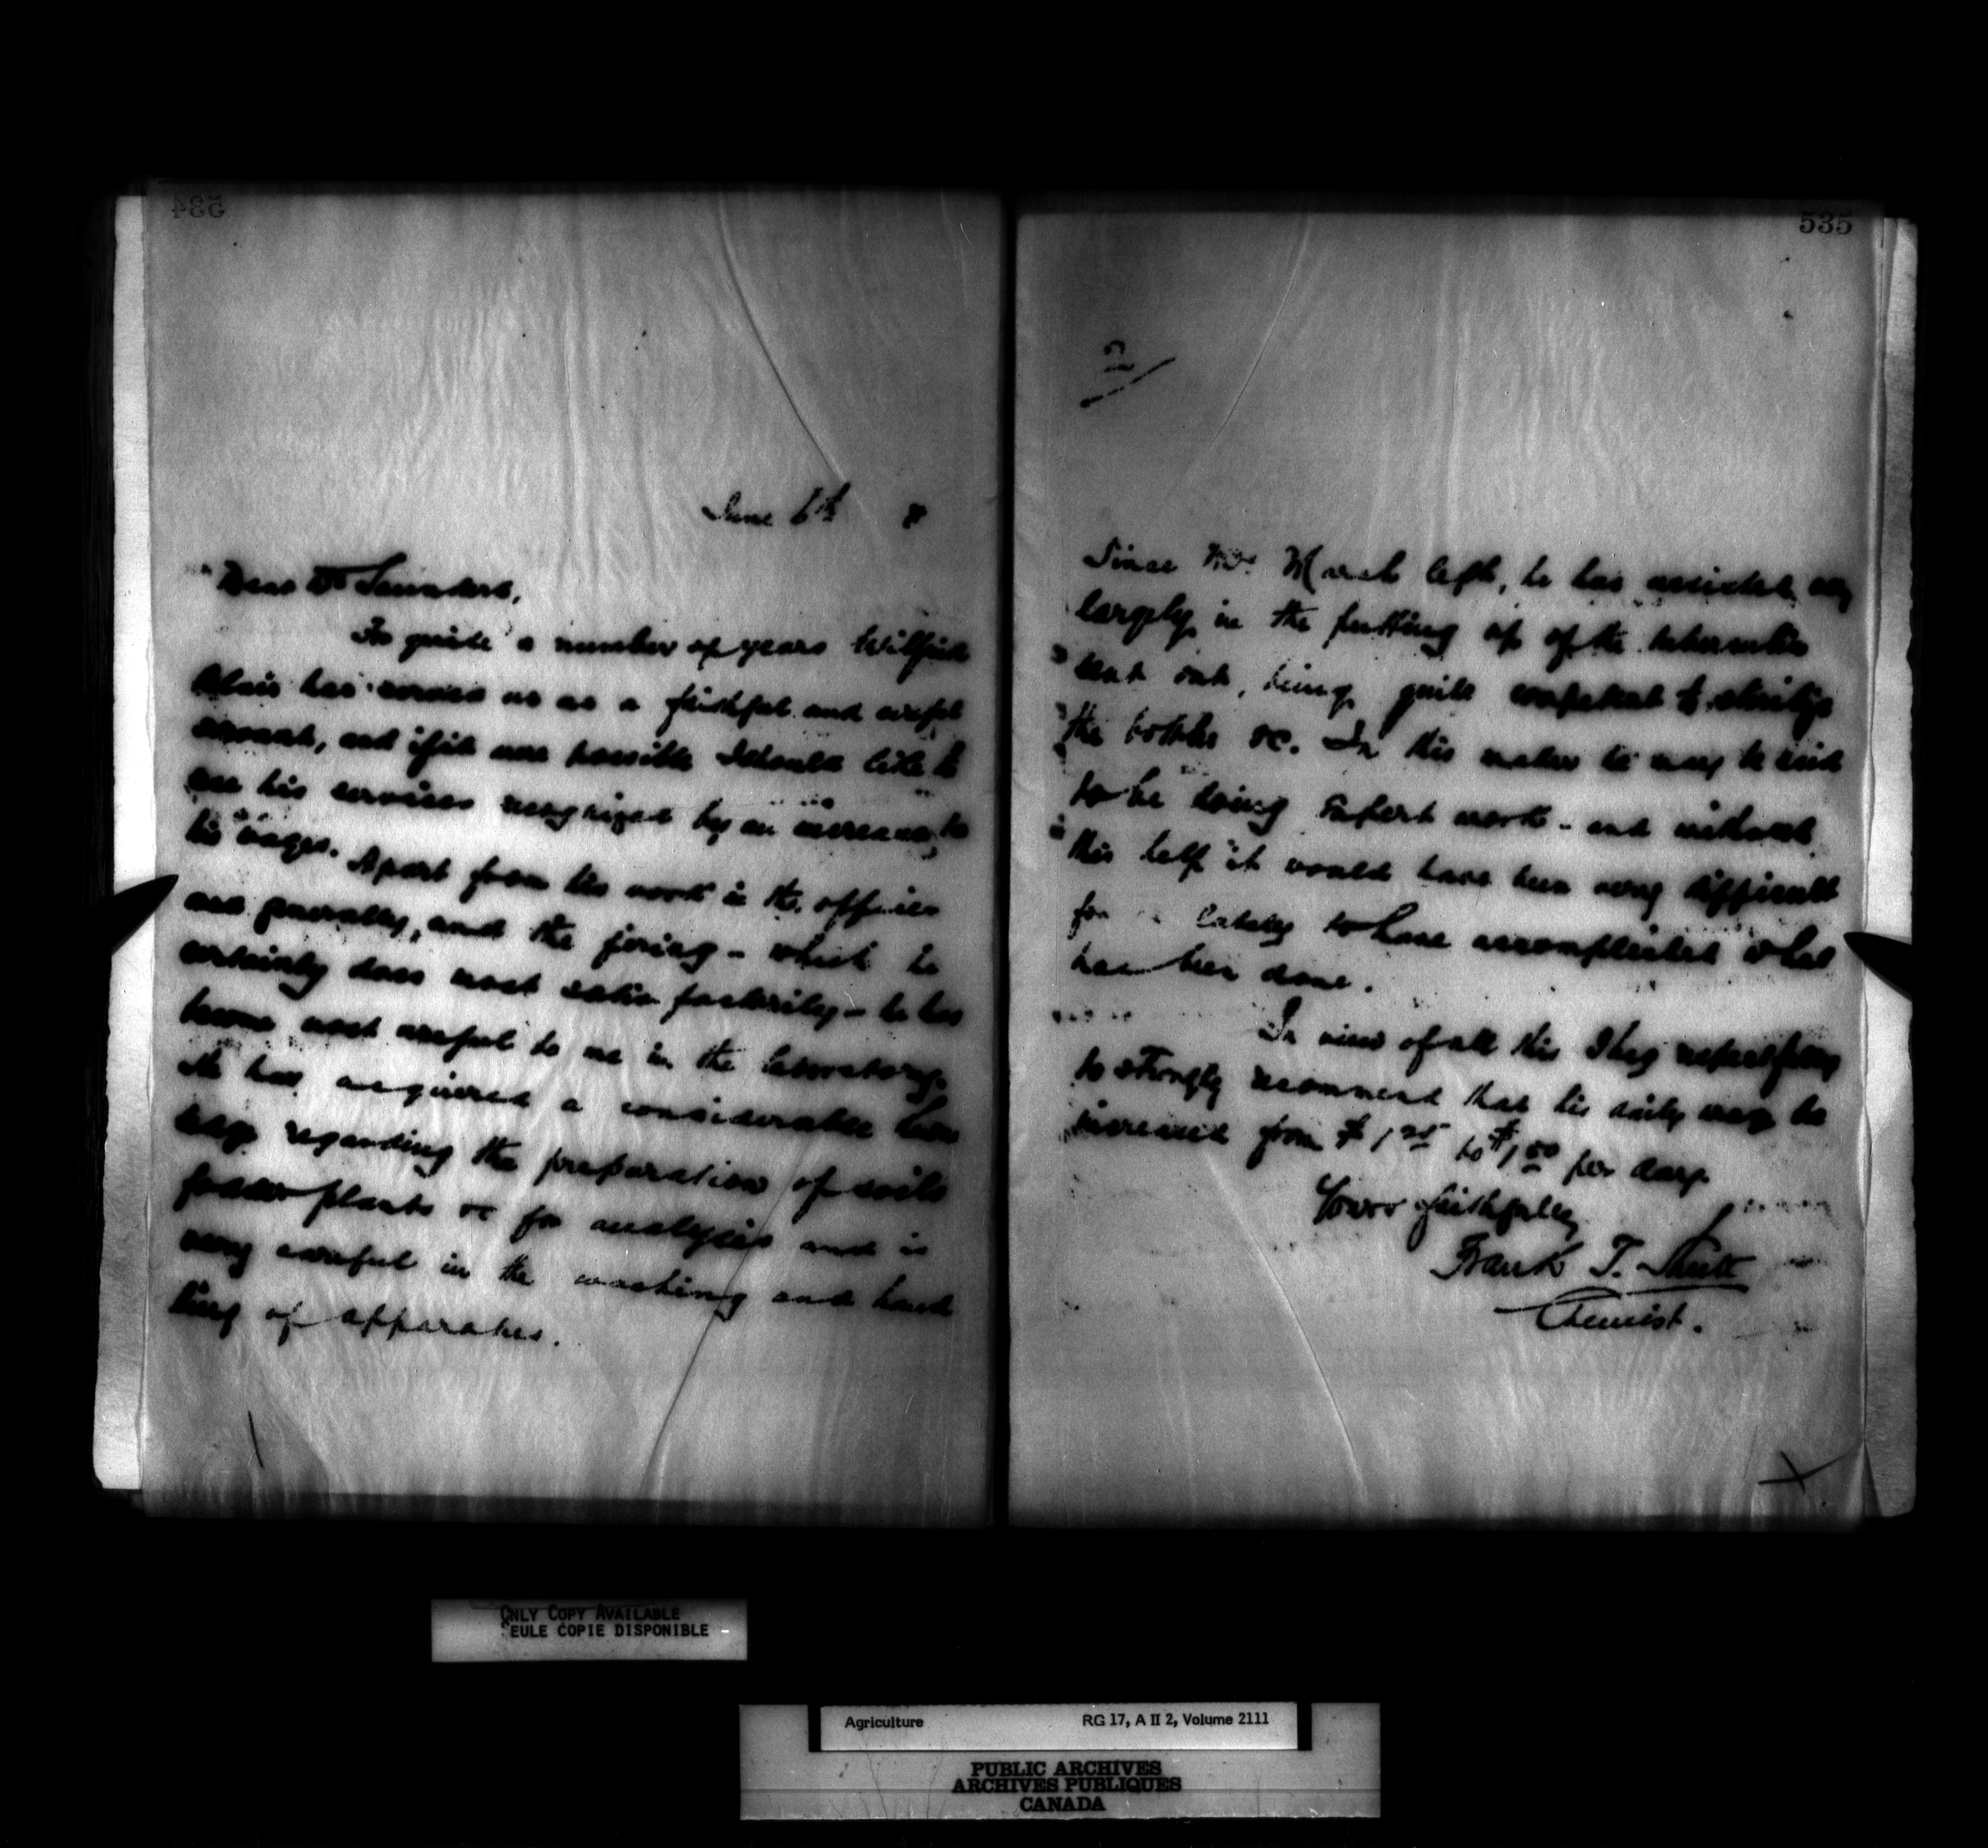 534
June 6th 8
Dear Dr Saunders,
For quite a number of years Wilfrid
Blair has served us as a faithful and careful
servant, and if it were possible I should like to
see his services recognized by an increase to
his wages. Apart from his work in the offices
and generally, and the firing - which he
certainly does most satisfactorily - he has
become most useful to me in the laboratory.
He has acquired a considerable know
ledge regarding the preparation of soils
fodder plants &c for analysis and is
very careful in the washing and hand
ling of apparatus.
535
2/
Since Mr. Marsh left, he has assisted very
largely in the putting up of the tuberculin
sent out, being quite competent to sterilize
the bottles &c. In this matter he may be said
to be doing expert work - and without
his help it would have been very difficult
for lately to have accomplished what
has been done.
In view of all this I beg respectfully
to strongly recommend that his daily wage be
increased from $1.25 to $1.50 per day.
Yours faithfully
Frank T. Shutt
Chemist.
ONLY COPY AVAILABLE
SEULE COPIE DISPONIBLE
Agriculture RG 17, A II 2, Volume 2111
PUBLIC ARCHIVES
ARCHIVES PUBLIQUES
CANADA